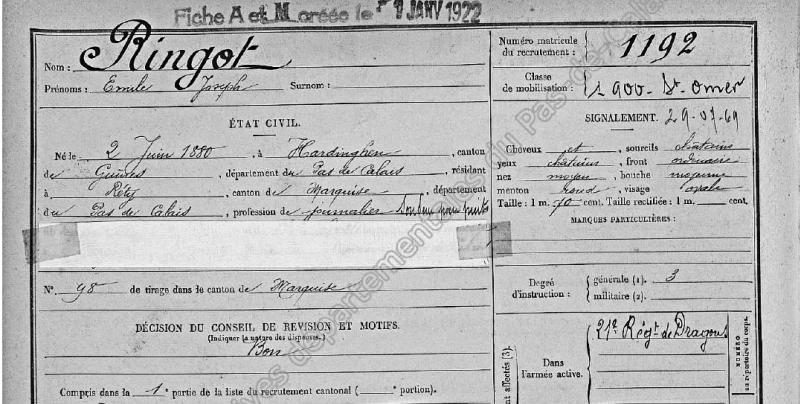 Fiche A et M créée le 1 JANV 1922
Nom : Ringot
Prénoms : Emile Joseph Surnom :
ÉTAT CIVIL.
Né le 2 Juin 1880, à Hardinghen, canton
de Guines, département du Pas de Calais, résidant
à Réty, canton de Marquise, département
du Pas de Calais, profession de journalier
N° 98 de tirage dans le canton de Marquise
DÉCISION DU CONSEIL DE REVISION ET MOTIFS.
(Indiquer la nature des dispenses.)
Bon
Compris dans la 1e partie de la liste du recrutement cantonal ( ° portion).
Numéro matricule du recrutement : 1192
Classe de mobilisation : 1900 - St Omer
SIGNALEMENT. 29-07-69
Cheveux et sourcils chatains
yeux chatains, front ordinaire
nez moyen, bouche moyenne
menton rond, visage ovale
Taille : 1 m. 70 cent. Taille rectifiée : 1 m. cent.
MARQUES PARTICULIÈRES :
Degré d'instruction : générale (1). 3
militaire (2).
21e Régt de Dragons
Dans l'armée active.
affectés (3).
NUMÉRO au répertoire du corps.
Archives départementales du Pas-de-Calais